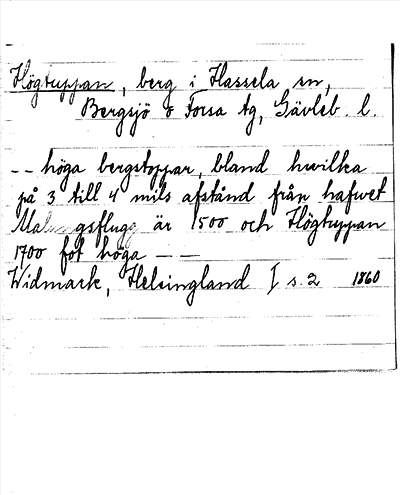 Högtuppan, berg i Hassela sn,
Bergsjö o Forsa tg, Gävleb. l.
-- höga bergstoppar, bland hwilka
på 3 till 4 mils afstånd från hafvet
är 1500 och Högtuppan
1700 fot höga --
Widmark, Helsingland I s. 2 1860